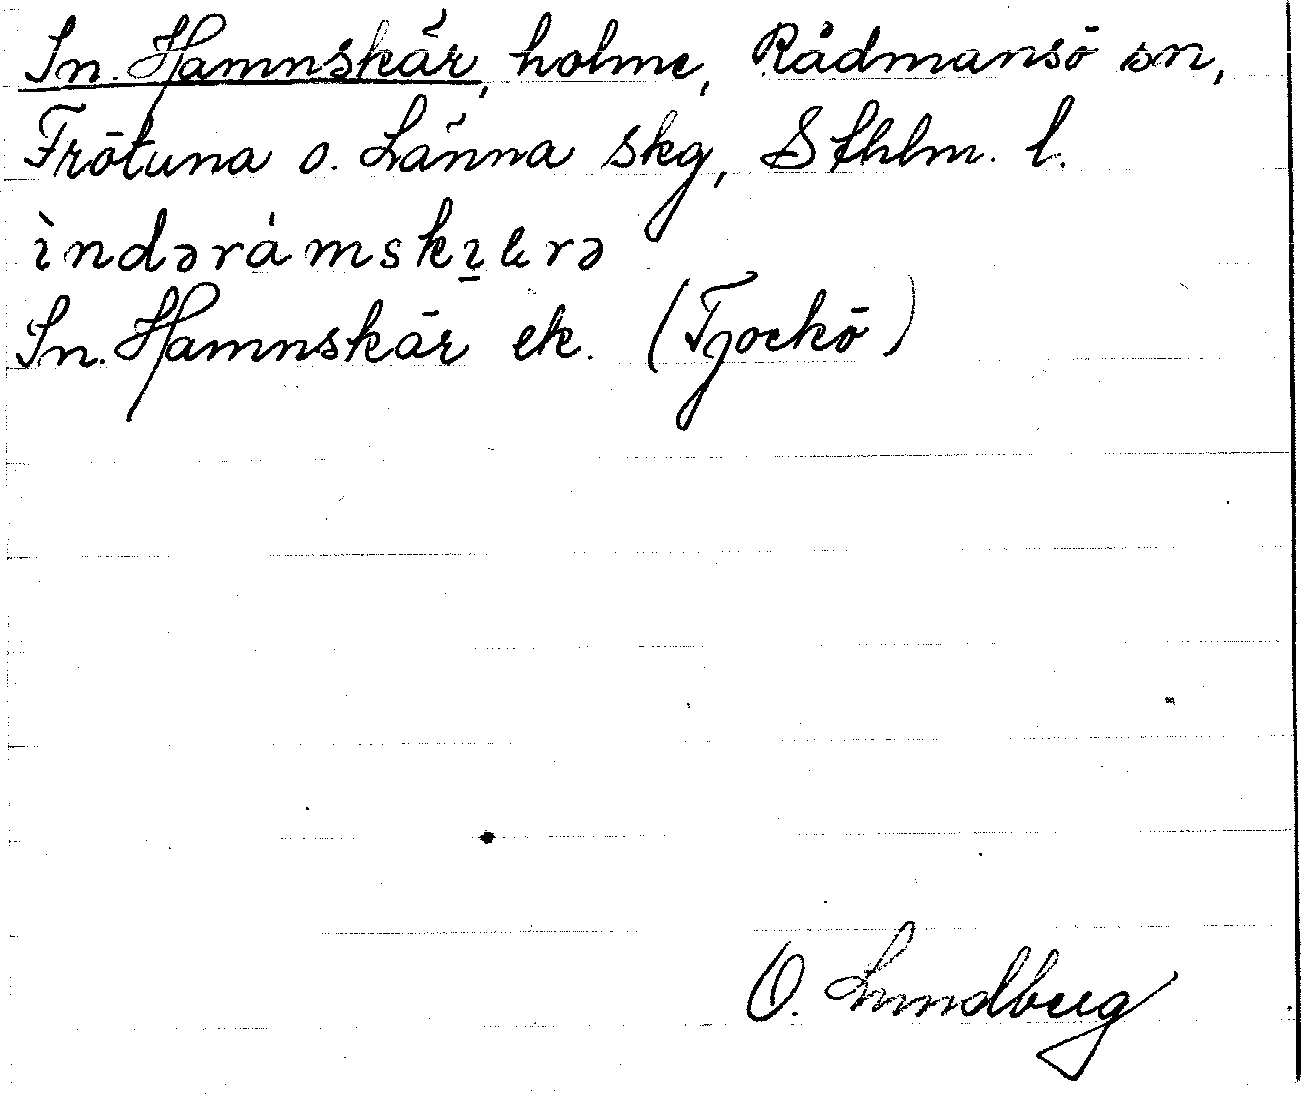 In. Hamnskär, holme, Rådmansö sn,
Frötuna o. Länna skg, Sthlm. l.
ìndərámsk
In. Hamnskär ek. (Tjockö)
O. Lundberg